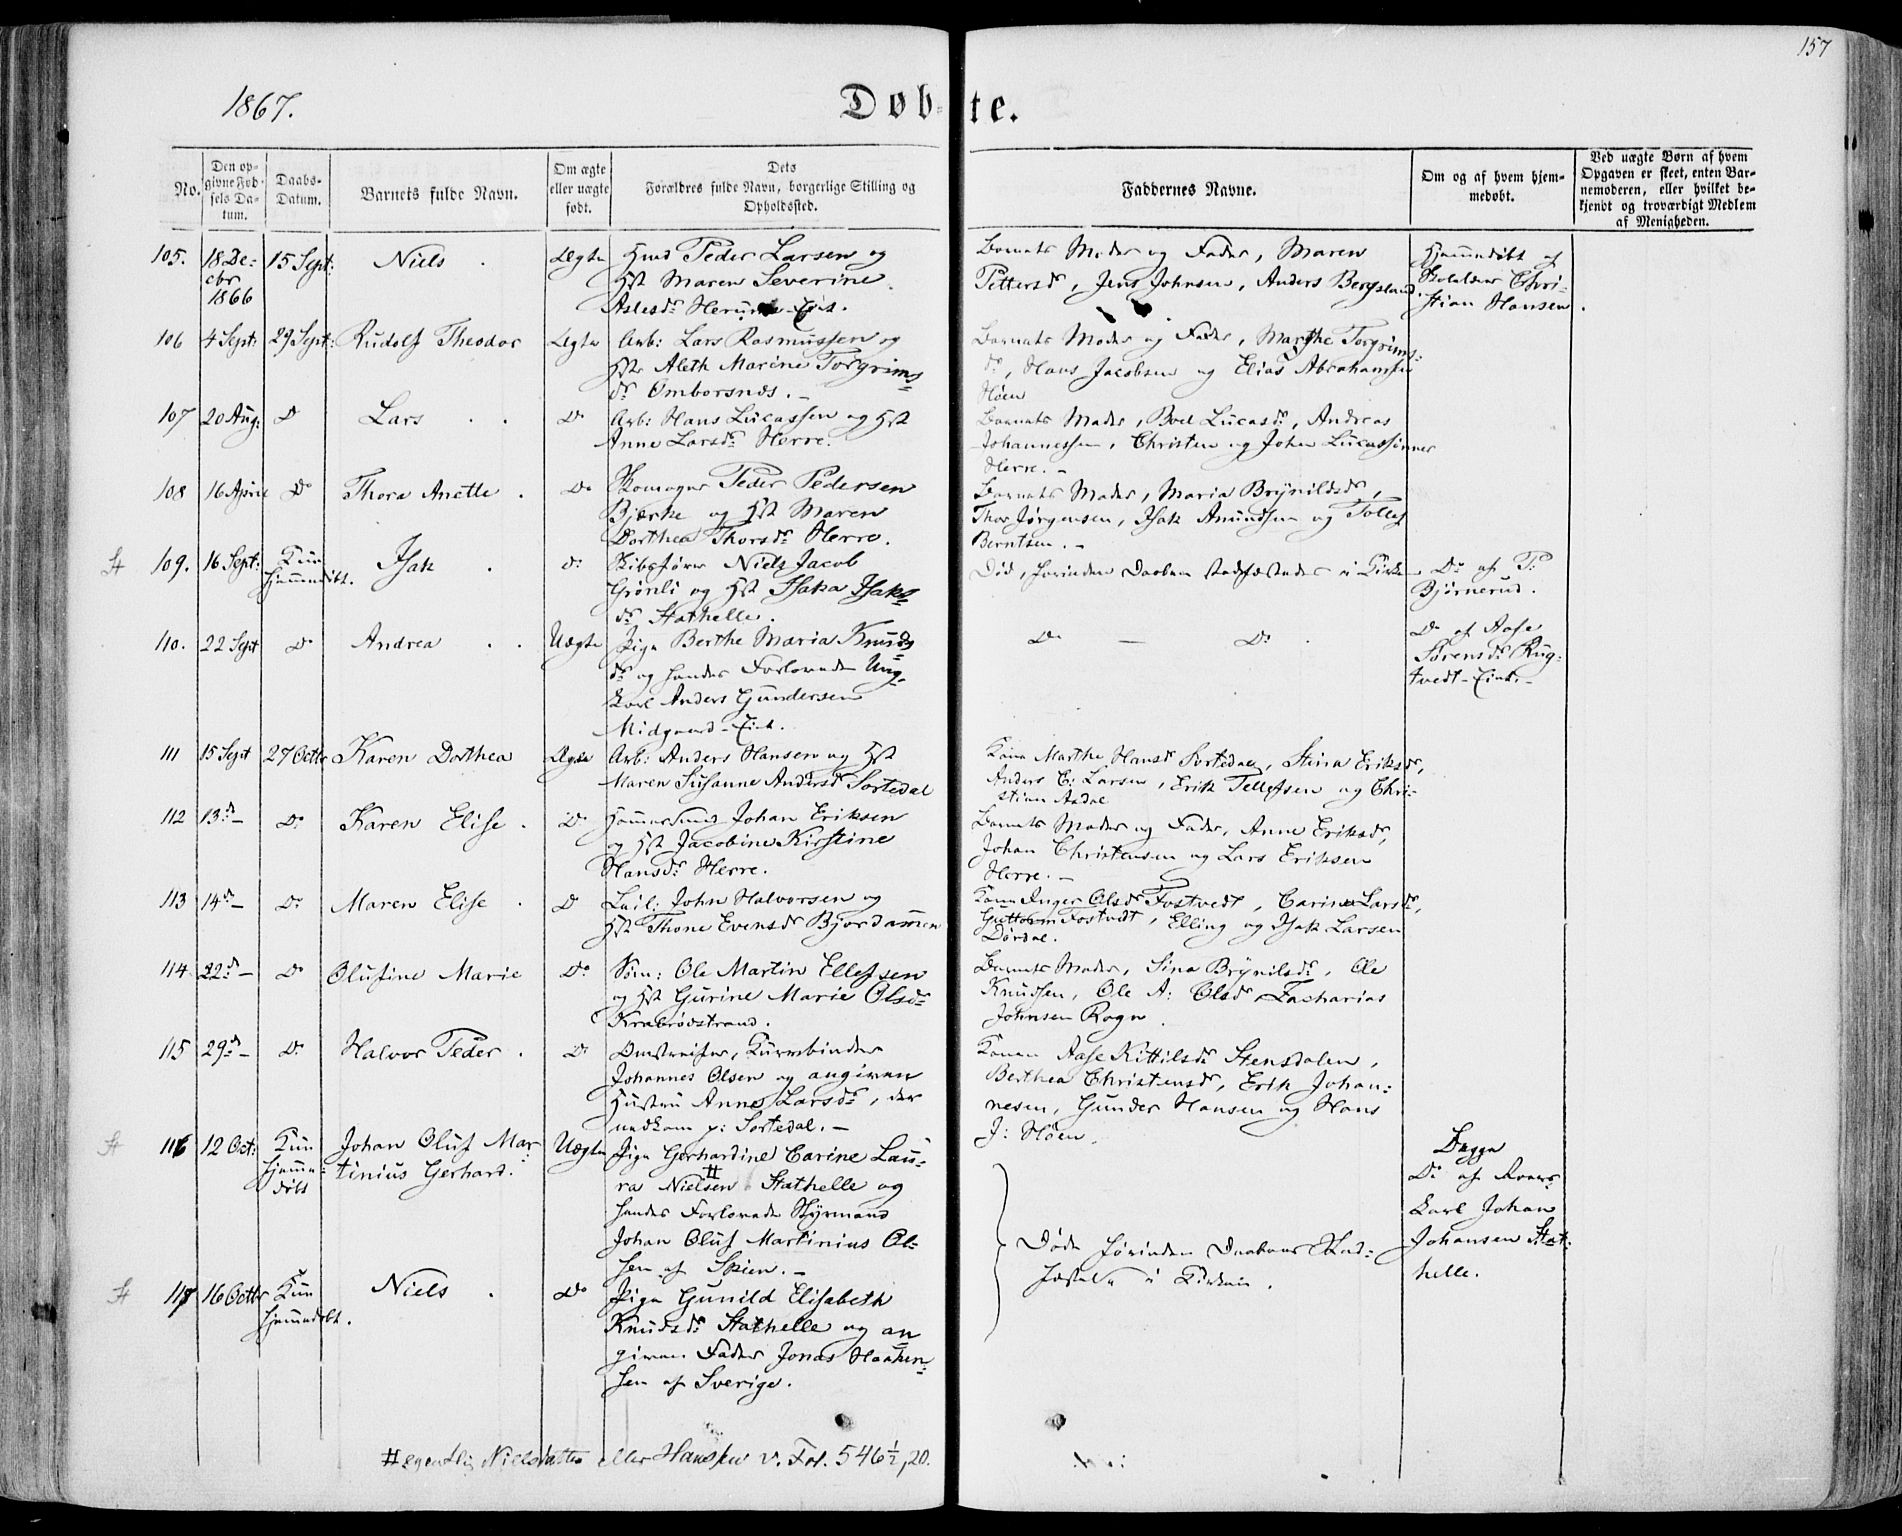 157
1867.
Døb- te.
No.
Den op-
givne Fød-
sels Da-
tum.
Daabs-
Datum.
Barnets fulde Navn.
Om ægte
eller uægte
født.
Dets
Forældres fulde Navn, borgerlige Stilling og
Opholdssted.
Faddernes Navne.
Om og af hvem hjem-
medøbt.
Ved uægte Børn af hvem
Opgaven er skeet, enten Bar-
nemoderen, eller hvilket be-
kjendt og troværdigt Medlem
af Menigheden.
105. 18 De-
cbr
1866
15 Sept:
Niels
Ægte
Hmd Peder Larsen og
Hst Maren Severine
Aslesdr Herum Eid.
Barnets Moder og Fader, Maren
Pettersdr, Jens Johnsen, Anders Bergsland
Hjemmedøbt af
Christian Hansen.
106 4 Sept: 29 Sept: Rudolf Theodor Ægte
Arb: Lars Rasmussen og
Hst Aleth Marine Torgrims-
dr Omborsnæs. -
Barnets Moder og Fader, Marthe Torgrims-
dr, Hans Jacobsen og Elias Abrahamsen
Høen
107 20 Aug: Do Lars Do
Arb: Hans Lucassen og Hst
Anne Larsdr Herre.
Barnets Moder, Boel Lucasdr, Andreas
Johannessen, Christen og Johan Lucassønner
Herre. -
108 16 April Do Thora Anette Do
Skomager Peder Pedersen
Bjerke og Hst Maren
Dorthea Thorsdr Herre.
Barnets Moder, Maria Brynildsdr,
Thor Jørgensen, Isak Amundsen og Tollef
Berntsen. -
109. 16 Sept: Kun
hjemmedøbt.
Isak Do
Skibsfører Niels Jacob
Grønli og Hst Isaka Isaks-
dr Stathelle.
Død, forinden Daaben stadfæstedes i Kirken
Do af P:
Bjørnerud.
110. 22 Sept Do Andrea Uægte
Pige Berthe Maria Knuds-
dr og hendes Forlovede Ung-
karl Anders Gundersen
Midgaard-Eid.
Do - Do
Do af Aase
Sørensdr Rug-
tvedt-Eid. -
111 15 Sept 27 Octbr Karen Dorthea Ægte
Arb: Anders Hansen og Hst
Maren Susanne Andersdr Sortedal
Kone Marthe Hansdr Sortedal, Stina Eriksdr,
Anders C: Larsen, Erik Tellefsen og Chri-
stian Aadal
112 13de - Do Karen Elise. Do
Hammersmed Johan Eriksen
og Hst Jacobine Kirstine
Hansdr Herre.
Barnets Moder og Fader, Anne Eriksdr,
Johan Christensen og Lars Eriksen
Herre. -
113 14de - Do Maren Elise Do
Leil: John Halvorsen og
Hst Thone Evensdr Bjordammen
Kone Inger Olsdr Tostvedt, Carine Larsdr,
Guttorm Tostvedt, Elling og Isak Larsen
Dørdal.
114 22de - Do Olufine Marie Do
Søm: Ole Martin Ellefsen
og Hst Gurine Marie Olsdr
Krabrødstrand.
Barnets Moder, Sina Brynilsdr, Ole
Knudsen, Ole A: Olsdr, Zacharias
Johnsen Rogn.
115 29de - Do Halvor Peder. Do
Omstreifer, Kurvbinder
Johannes Olsen og angiven
Hustru Anne Larsdr, der
nedkom p: Sortedal. -
Konen Aase Kittilsdr Stensdalen,
Berthea Christensdr, Erik Johan-
nesen, Gunder Hansen og Hans
J: Høen.
116 12 Oct: Kun
hjemme-
døbt
Johan Oluf Mar-
tinius Gerhard. Uægte
Pige Gerhardine Carine Lau-
ra Nielsen # Stathelle og
hendes Forlovede Styrmand
Johan Oluf Martinius Ol-
sen af Skien. -
Døde forinden Daabens Stad-
fæstelse i Kirken.
Begge
Do af
Karl Johan
Johansen Stat-
helle.
117 16 Octbr Kun
hjemmedøbt.
Niels. Do
Pige Gunild Elisabeth
Knudsdr Stathelle og an-
given Fader Jonas Haaken-
sen af Sverige.
# egentlig Nielsdatter eller Hansen v. Fol. 546½, 20.